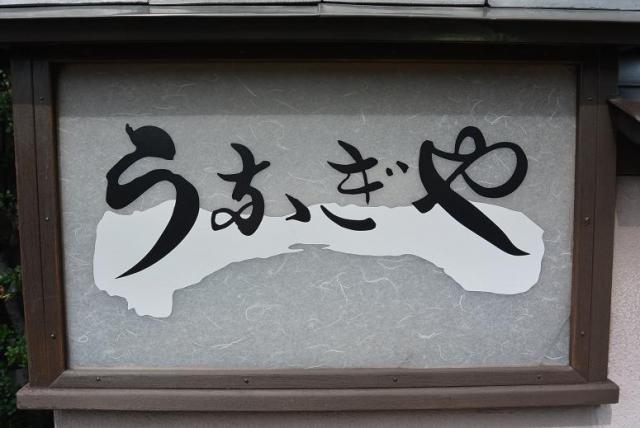 うなぎや